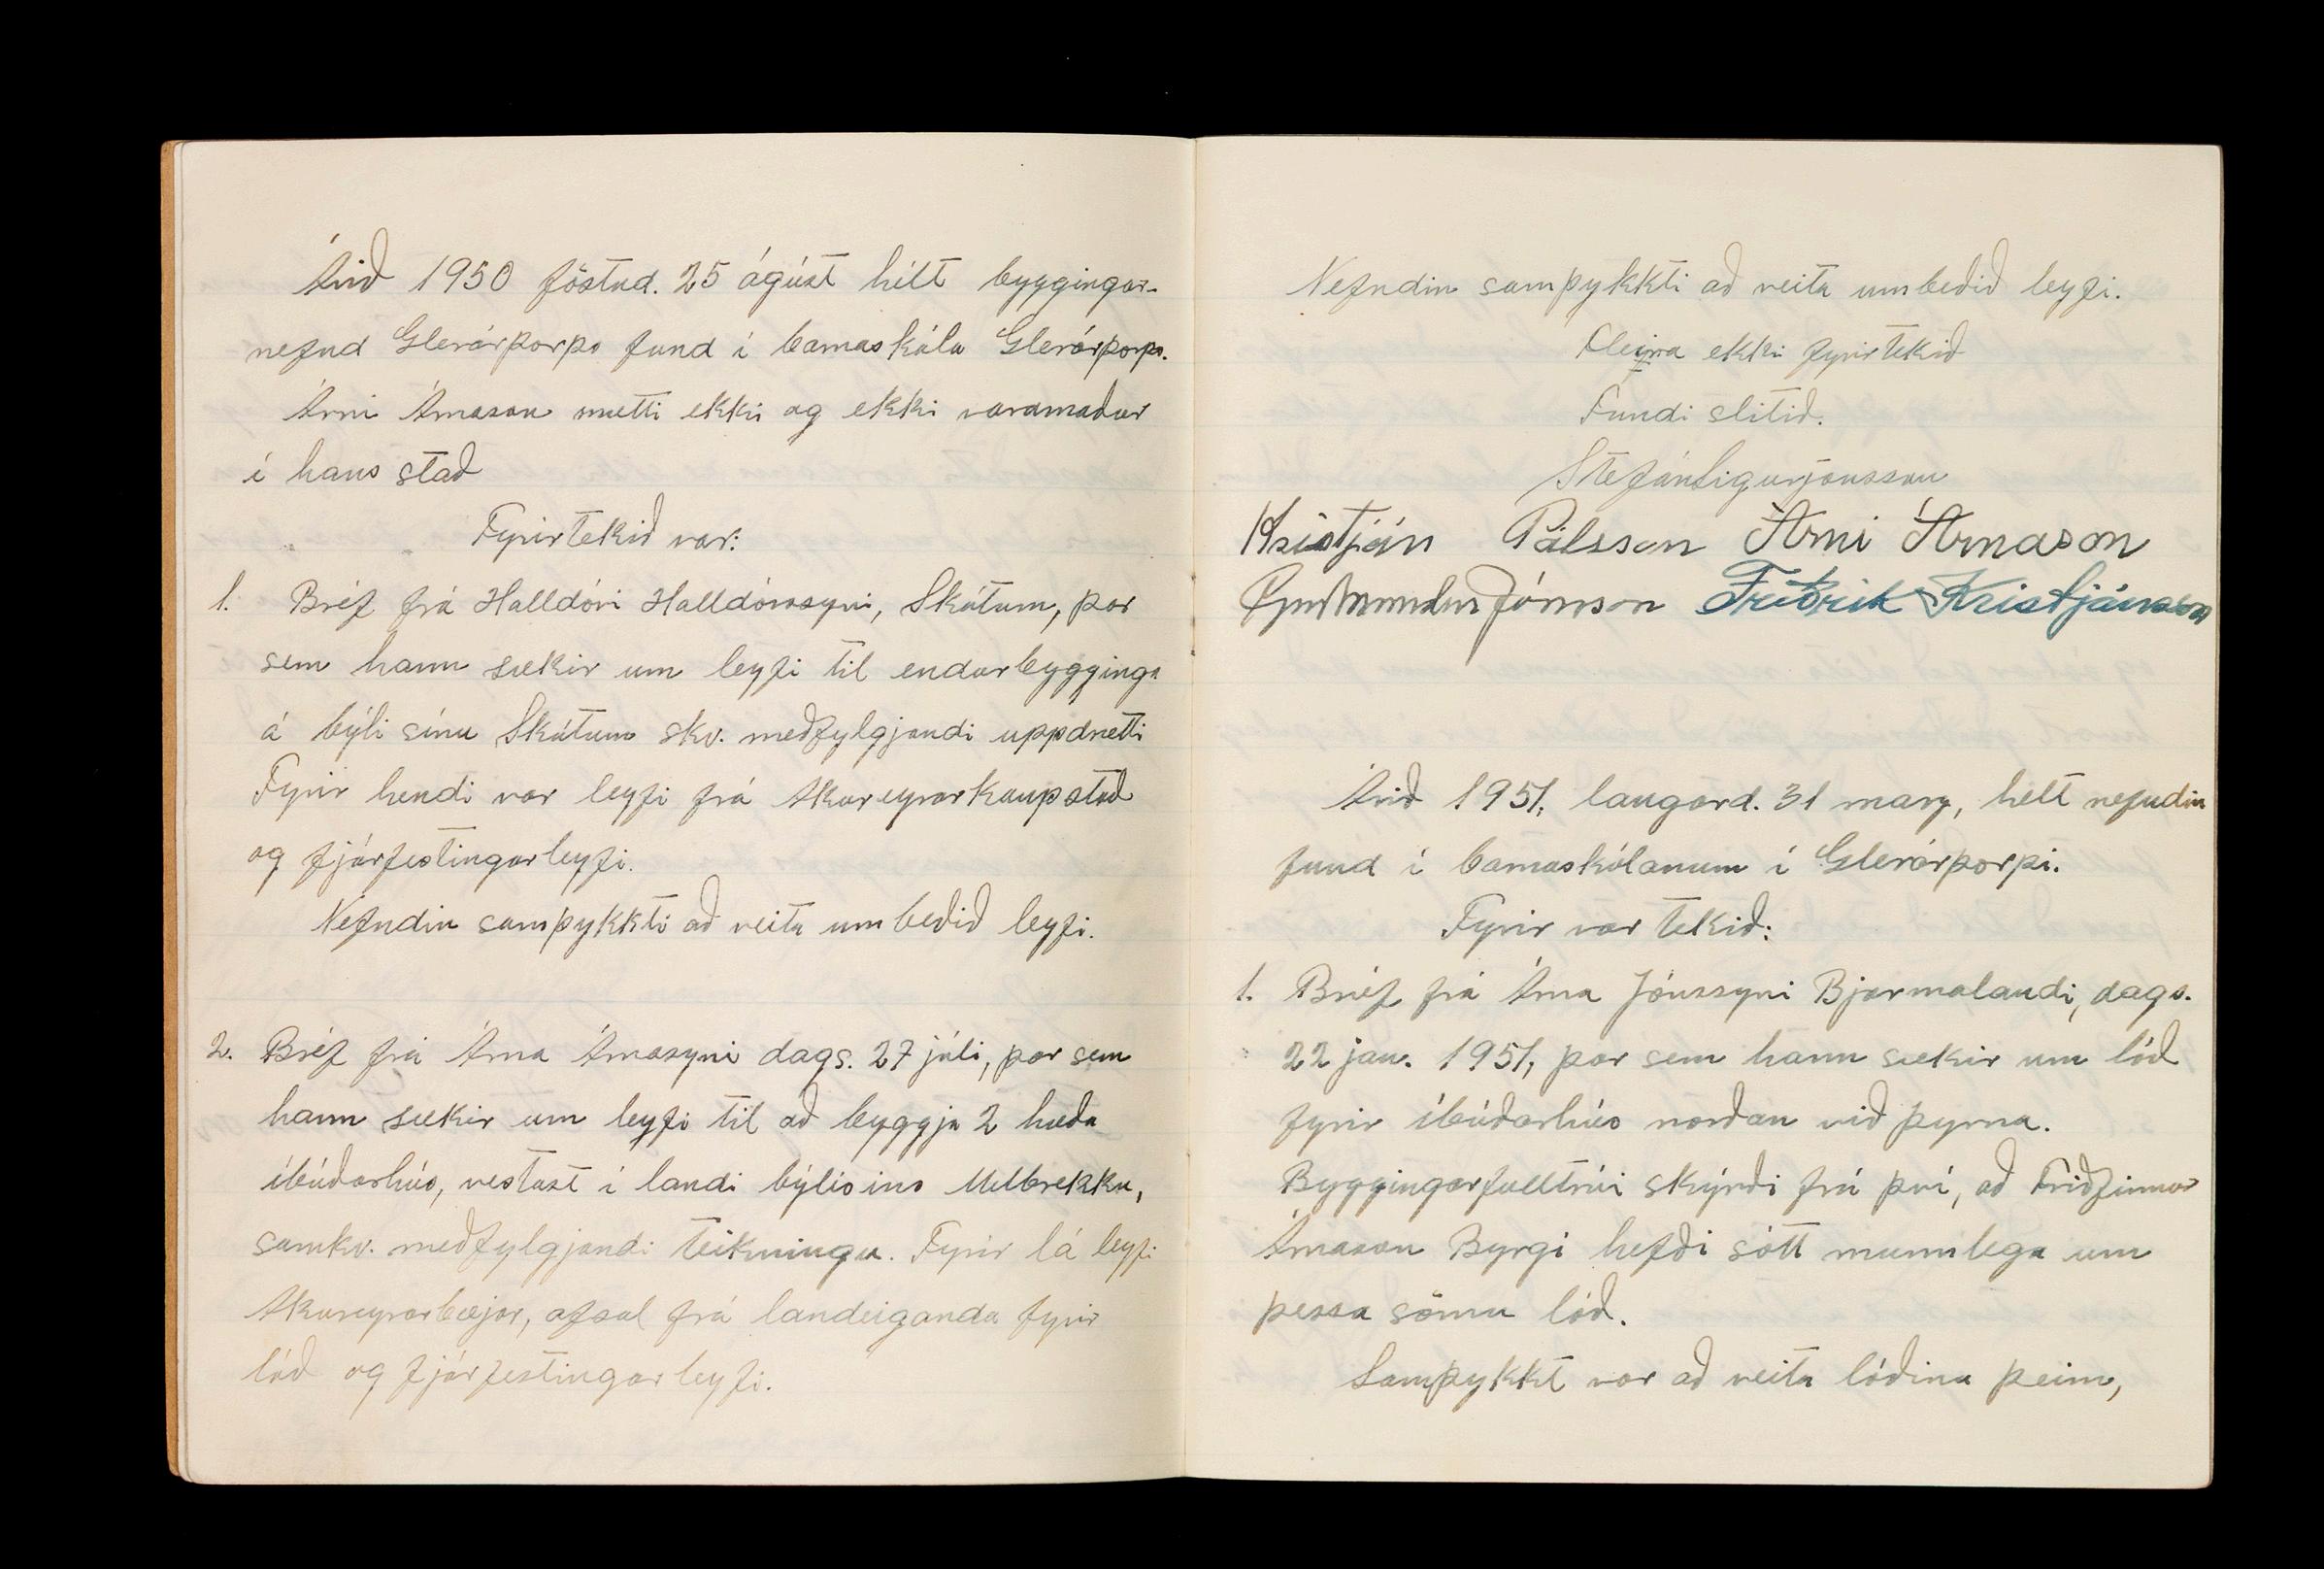 Árið 1950 föstud. 25 ágúst hélt byggingar-
nefnd Glerárþorps fund í barnaskóla Glerárþorps.
Árni Árnason mætti ekki og ekki varamaður
í hans stað
Fyrirtekið var:
1. Bréf frá Halldóri Halldórssyni, Skútum, þar
sem hann sækir um leyfi til endurbygginga
á býli sínu Skútum skv. meðfylgjandi uppdrætti
Fyrir hendi var leyfi frá Akureyrarkaupstað
og fjárfestingarleyfi.
Nefndin samþykkti að veita umbeðið leyfi.
2. Bréf frá Árna Árnasyni dags. 27 júlí, þar sem
hann sækir um leyfi til að byggja 2 hæða
íbúðarhús, vestast í landi býlisins Melbrekku,
samkv. meðfylgjandi teikningu. Fyrir lá leyfi
Akureyrarbæjar, afsal frá landeiganda fyrir
lóð og fjárfestingarleyfi.
Nefndin samþykkti að veita umbeðið leyfi.
Fleira ekki fyrirtekið
Fundi slitið.
Stefán Sigurjónsson
Kristján Pálsson Árni Árnason
Guðmundur Jónsson Friðrik Kristjánsson
Árið 1951, laugard. 31 marz, hélt nefndin
fund í barnaskólanum í Glerárþorpi.
Fyrir var tekið:
1. Bréf frá Árna Jónssyni Bjarmalandi, dags.
22 jan. 1951, þar sem hann sækir um lóð
fyrir íbúðarhús norðan við Þyrna.
Byggingarfulltrúi skýrði frá því, að Friðfinnur
Árnason Byrgi hefði sótt munnlega um
þessa sömu lóð.
Samþykkt var að veita lóðina þeim,